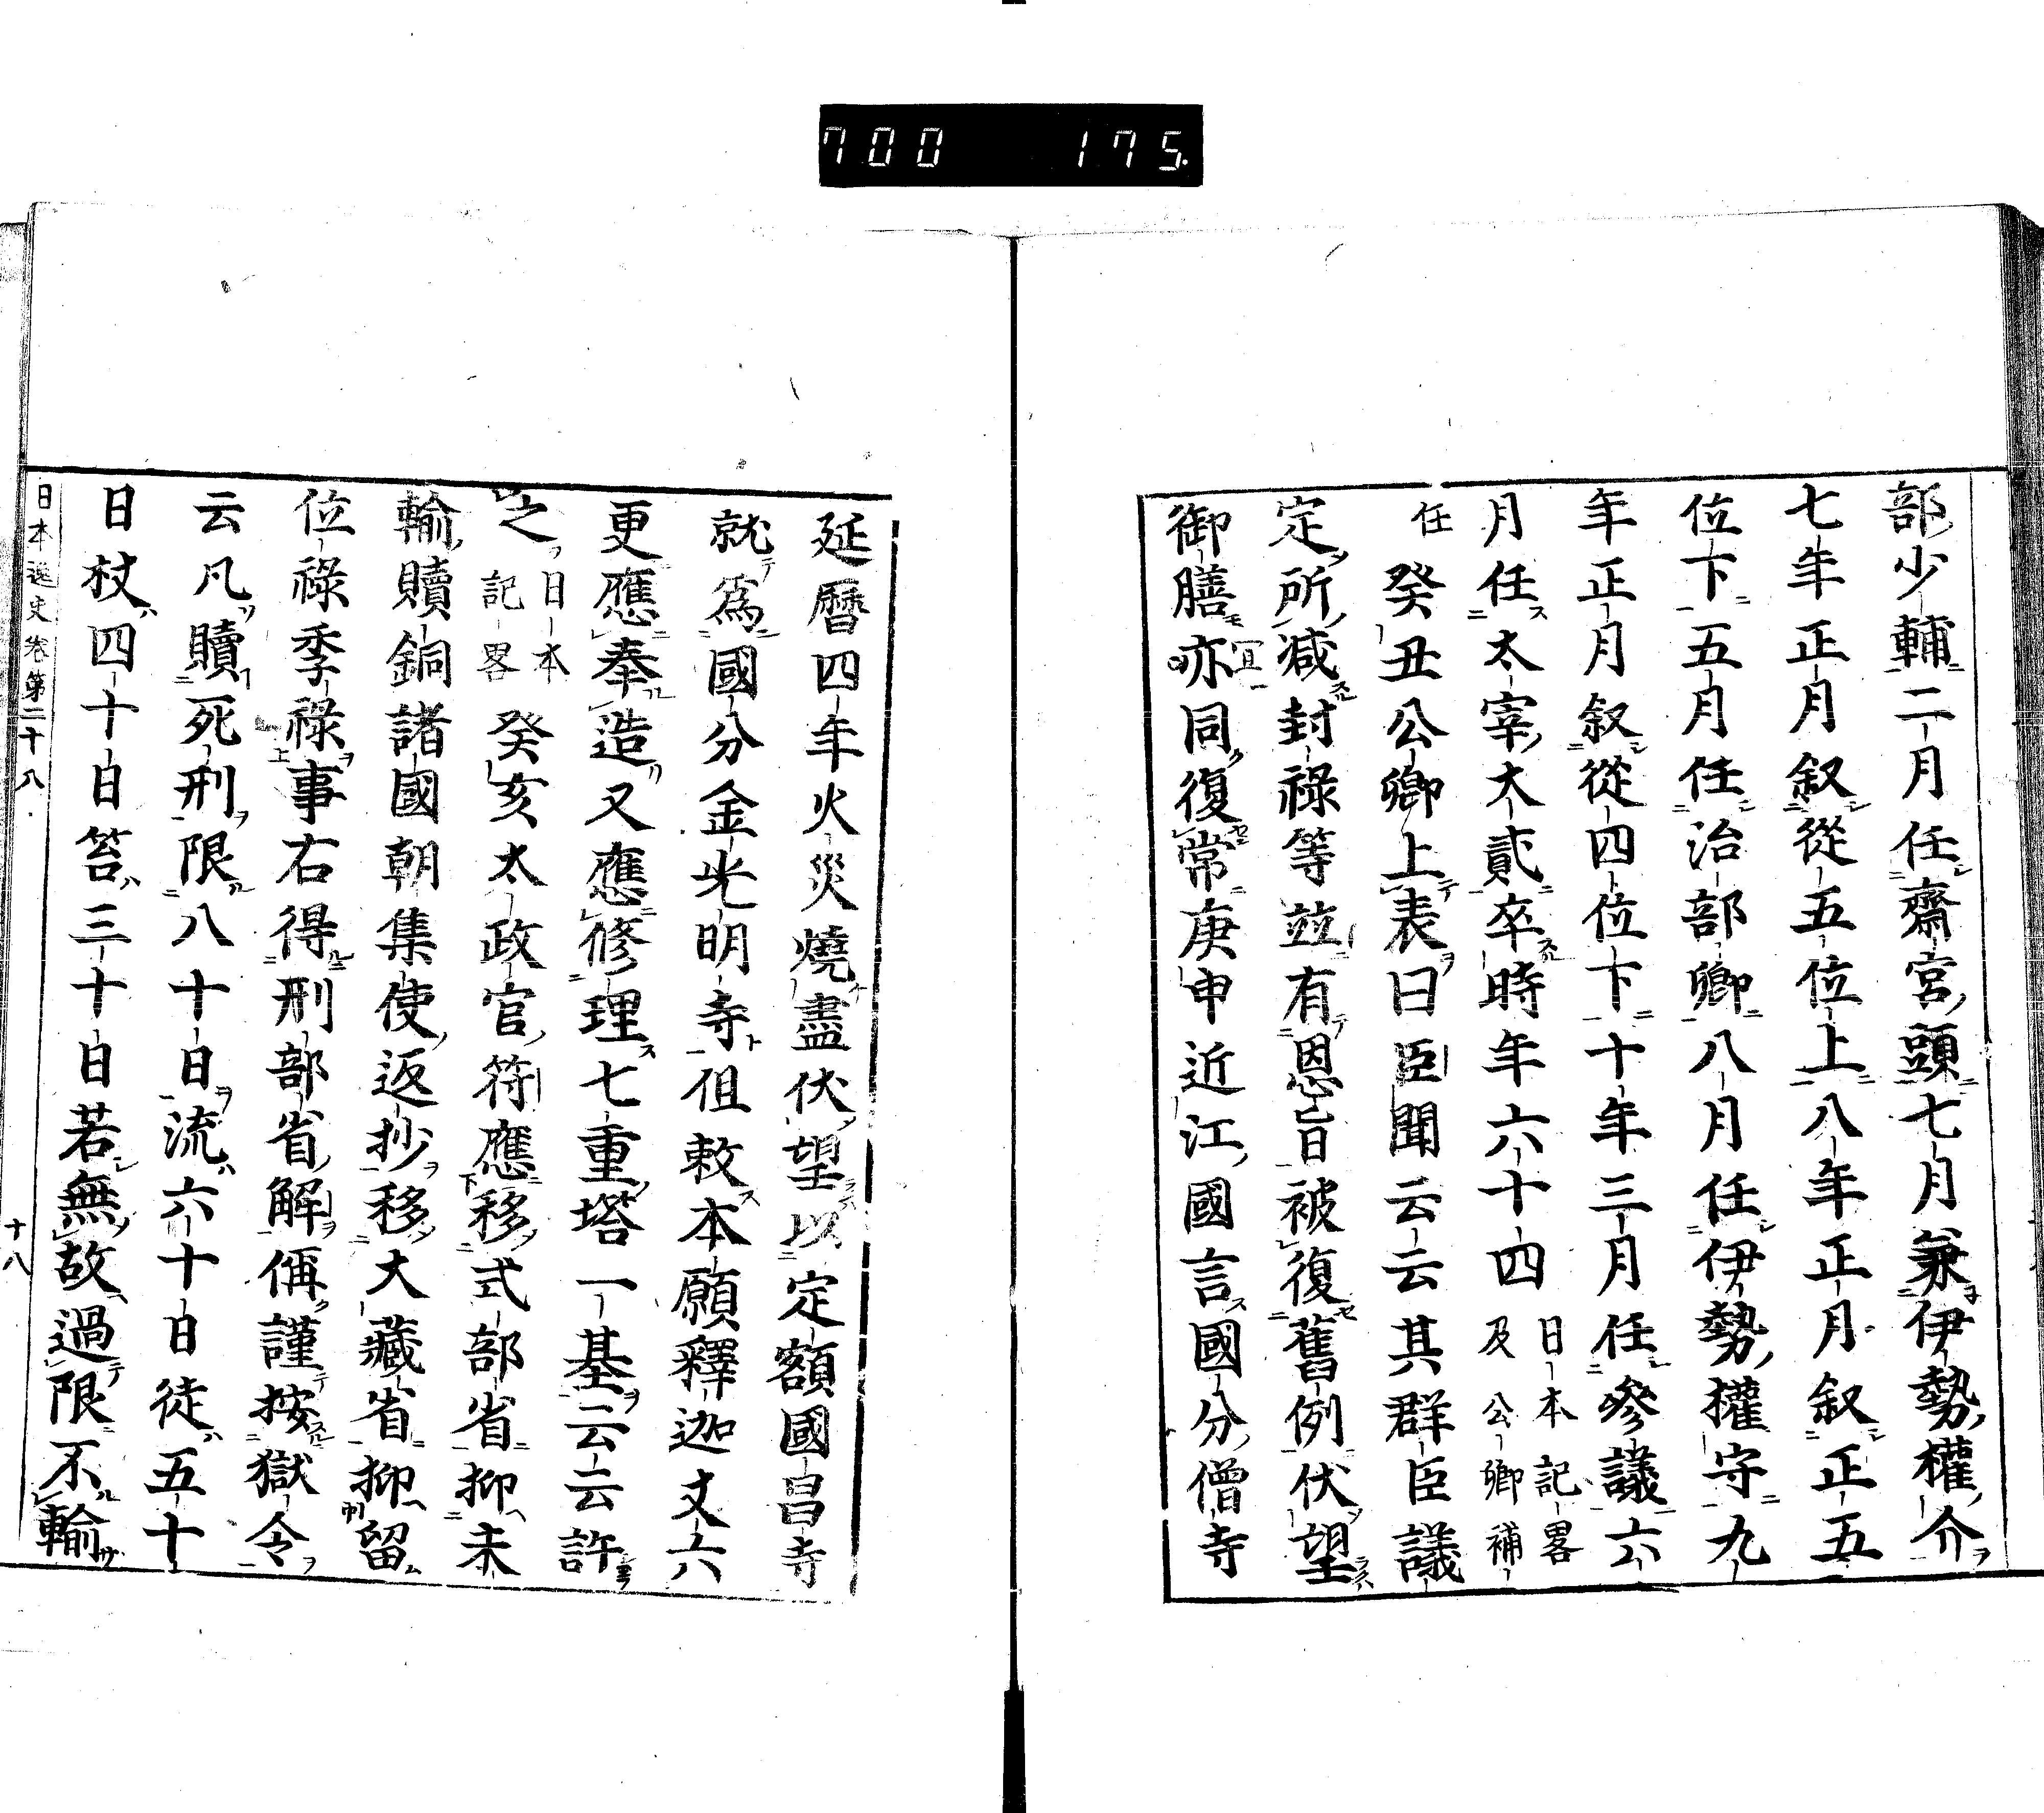 700 175
部少輔二月任齋宮頭七月兼伊勢權介
七年正月叙從五位上八年正月叙正五
位下五月任治部卿八月任伊勢權守九
年正月叙從四位下十年三月任參議六
月任太宰大貳卒時年六十四日本記畧及公卿補
任癸丑公卿上表曰臣聞云云其群臣議
定所减封祿等並有恩旨被復舊例伏望
御膳亦同復常庚申近江國言國分僧寺
延曆四年火災燒盡伏望以定額國昌寺
就爲國分金光明寺但敕本願釋迦丈六
更應奉造又應修理七重塔一基云云許
之日本記畧癸亥太政官符應移式部省抑未
輸贖銅諸國朝集使返抄移大藏省抑留
位祿季祿事右得刑部省解偁謹按獄令
云凡贖死刑限八十日流六十日徒五十
日杖四十日笞三十日若無故過限不輸
日本逸史卷第二十八 十八